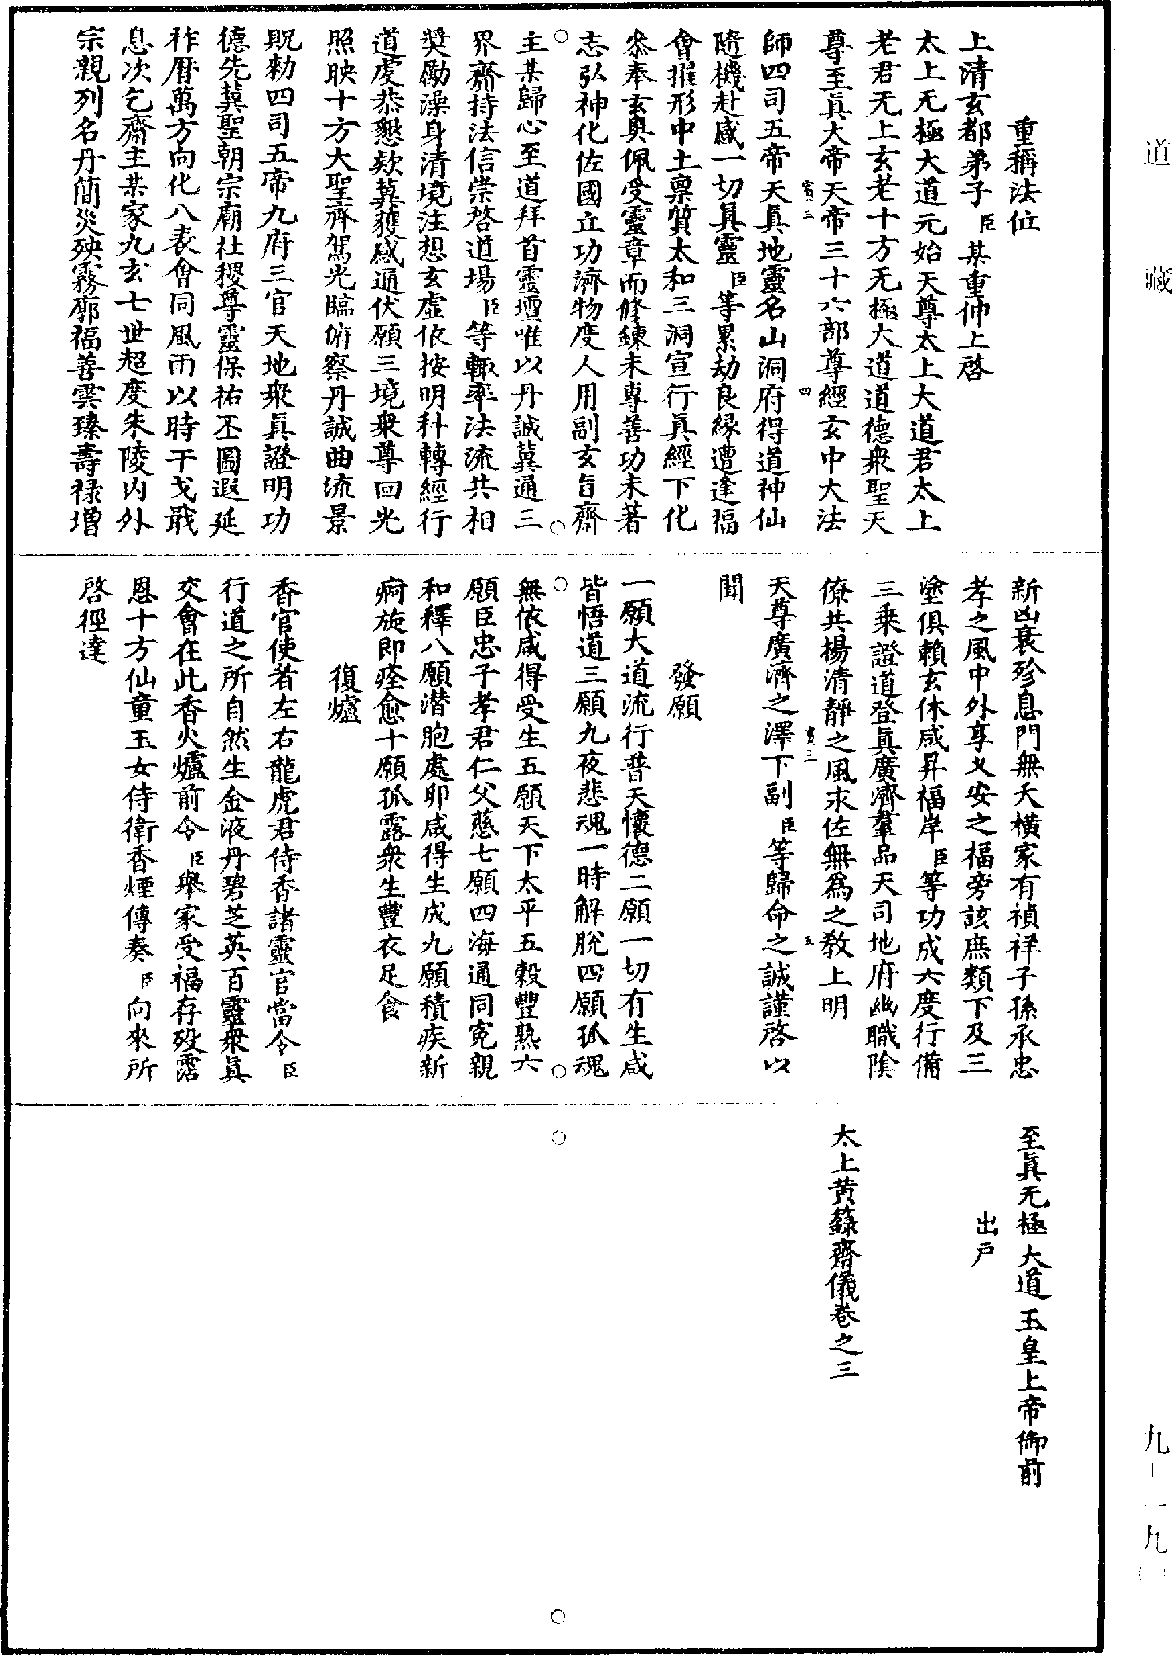 道藏
重稱法位
上清玄都弟子臣某重仲上啓
太上无極大道元始天尊太上大道君太上
老君无上玄老十方无極大道道德衆聖天
尊至眞大帝天帝三十六部尊經玄中大法
師四司五帝天眞地靈名山洞府得道神仙
隨機赴感一切眞靈臣等累劫良緣遭逢福
會摧形中土稟質太和三洞宣行眞經下化
恭奉玄奥佩受靈章而修鍊未專善功未著
志弘神化佐國立功濟物度人用副玄旨齋
主某歸心至道拜首靈壇唯以丹誠冀通三
界齋持法信崇啓道場臣等輙率法流共相
奬勵澡身清境注想玄虛依按明科轉經行
道虔恭懇欵冀獲感通伏願三境衆尊回光
照映十方大聖齊駕光臨俯察丹誠曲流景
貺勑四司五帝九府三官天地衆眞證明功
德先冀聖朝宗廟社稷尊靈保祐丕圖遐延
祚曆萬方向化八表會同風雨以時干戈戢
息次乞齋主某家九玄七世超度朱陵内外
宗親列名丹簡災殃霧廓福善雲臻壽禄增
新凶衰殄息門無夭橫家有禎祥子孫承忠
孝之風中外享乂安之福旁該庶類下及三
塗俱賴玄休咸昇福岸臣等功成六度行備
三乘證道登眞廣濟羣品天司地府幽職陰
僚共揚清靜之風永佐無爲之教上明
天尊廣濟之澤下副臣等歸命之誠謹啓以
聞
發願
一願大道流行普天懷德二願一切有生咸
皆悟道三願九夜悲魂一時解脫四願孤魂
無依咸得受生五願天下太平五穀豐熟六
願臣忠子孝君仁父慈七願四海通同寃親
和釋八願潛胞處卵咸得生成九願積疾新
痾旋即痊愈十願孤露衆生豐衣足食
復爐
香官使者左右龍虎君侍香諸靈官當令臣
行道之所自然生金液丹碧芝英百靈衆眞
交會在此香火爐前令臣舉家受福存歿霑
恩十方仙童玉女侍衛香煙傳奏臣向來所
啓徑達
至眞无極大道玉皇上帝御前
出戸
太上黄籙齋儀卷之三